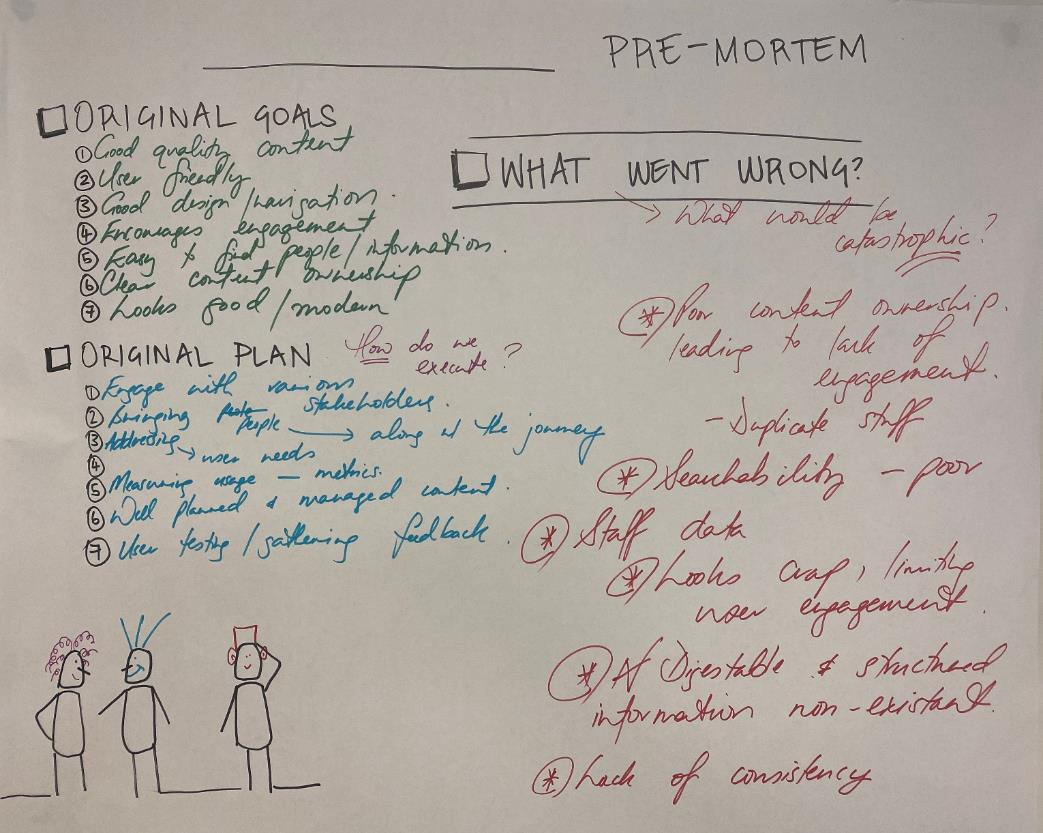 PRE-MORTEM
ORIGINAL GOALS
① Good quality content
② User friendly
③ Good design/navigation.
④ Encourages engagement
⑤ Easy to find people/information.
⑥ Clear content ownership
⑦ Looks good/modern
ORIGINAL PLAN How do we
execute?
① Engage with various
stakeholders.
② Bringing people → along w the journey
③ Addressing
④ → user needs
⑤ Measuring usage — metrics.
⑥ Well planned & managed content.
⑦ User testing/gathering feedback.
WHAT WENT WRONG?
→ What would be
catastrophic?
* Poor content ownership.
leading to lack of
engagement.
- Duplicate stuff
* Searchability - poor
* Staff data
* Looks crap, limiting
user engagement.
* Digestable & structured
information non-existant.
* Lack of consistency